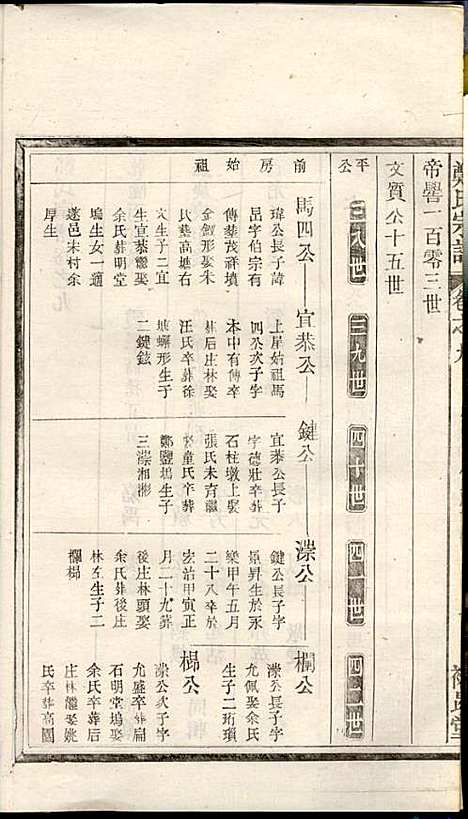 鄭氏宗譜
卷之九
帝嚳一百零三世
文質公十五世
平公
三八世
三九世
四十世
四一世
四二世
前房始祖
馬四公
宜恭公
鍵公
濼公
欄公
瑋公長子諱
昂字伯宗有
傳葬茂祥墳
金釵形娶朱
氏葬高塘右
文生子二宜
生宜恭繼娶
余氏葬明堂
塢生女一適
遂邑末村余
厚生
上屋始祖馬
四公次子字
本中有傳卒
葬后庄林娶
汪氏卒葬徐
坡螺形生子
二鍵鉉
宜恭公長子
字德壯卒葬
石柱墩上娶
張氏未育繼
娶童氏卒葬
鄭鹽塢生子
三濼湘彬
鍵公長子字
景昇生於永
樂甲午五月
二十八卒於
宏治甲寅正
月二十九葬
後庄林頭娶
余氏葬後庄
林 生子二
欄梯
濼公長子字
允佩娶余氏
生子二珩瑣
梯公
濼公次子字
允盛卒葬扁
石明堂塢娶
余氏卒葬后
庄林繼娶姚
氏卒葬高園